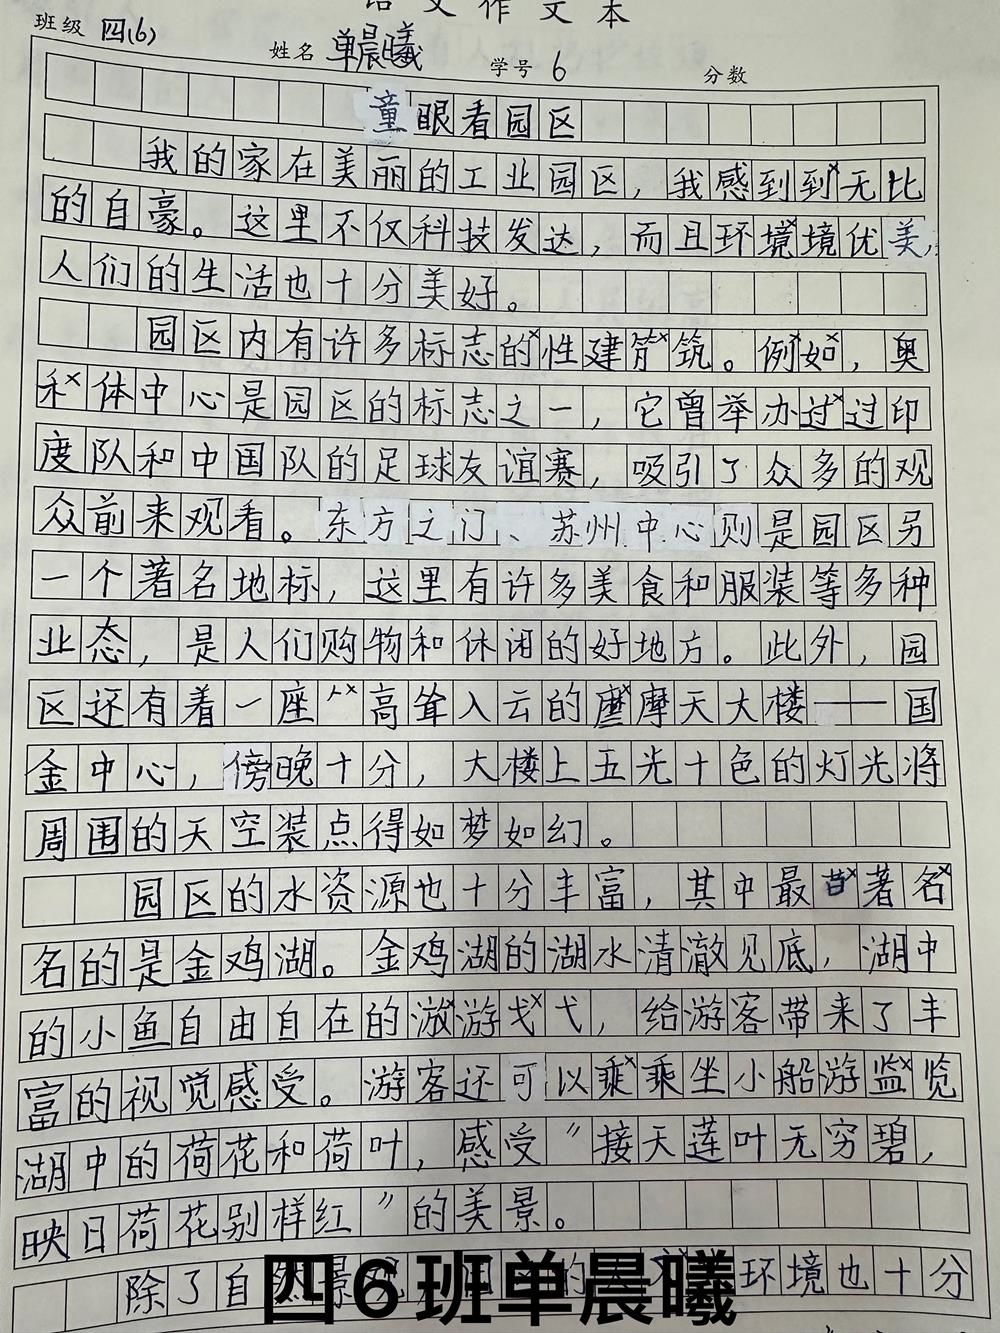 语文作文本
班级 四(6) 姓名 单晨曦 学号 6 分数
童眼看园区
我的家在美丽的工业园区，我感到到无比
的自豪。这里不仅科技发达，而且环境境优美，
人们的生活也十分美好。
园区内有许多标志的性建筑。例如，奥
体中心是园区的标志之一，它曾举办过过印
度队和中国队的足球友谊赛，吸引了众多的观
众前来观看。东方之门、苏州中心则是园区另
一个著名地标，这里有许多美食和服装等多种
业态，是人们购物和休闲的好地方。此外，园
区还有着一座高耸入云的摩天大楼——国
金中心，傍晚十分，大楼上五光十色的灯光将
周围的天空装点得如梦如幻。
园区的水资源也十分丰富，其中最著名
名的是金鸡湖。金鸡湖的湖水清澈见底，湖中
的小鱼自由自在的游弋，给游客带来了丰
富的视觉感受。游客还可以乘乘坐小船游览
湖中的荷花和荷叶，感受“接天莲叶无穷碧，
映日荷花别样红”的美景。
除了自 环境也十分
四6班单晨曦